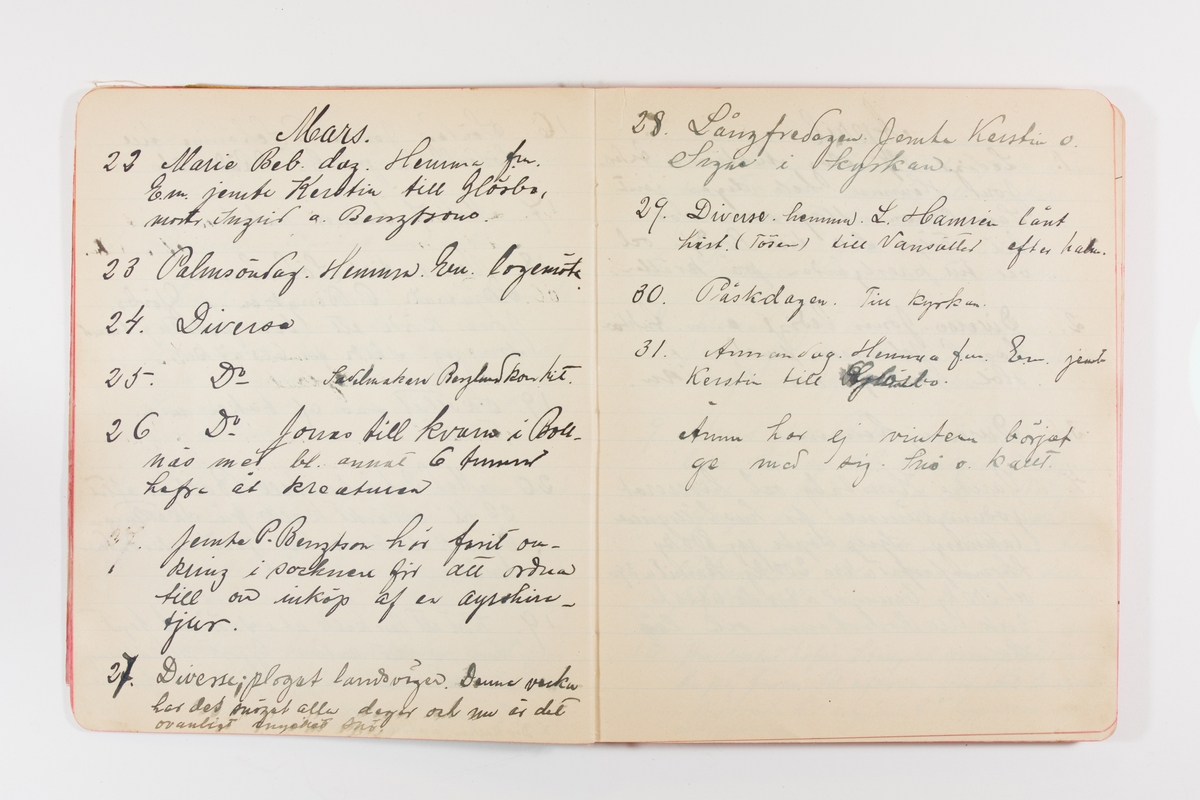 Mars.
22 Marie Beb. dag. Hemma fm.
Em. jemte Kerstin till Glösbo,
Ingrid a. Bengtsons.
23 Palmsöndag. Hemma. Em. logemöte.
24. Diverse
25. Do Sadelmakare Berglund kom hit.
26 Do Jonas till kvarn i Boll-
näs med bl. annat 6 tunnor
hafre åt kreaturen
Jemte P. Bengtson här farit om-
kring i socknen för att ordna
till om inköp af en ayrshire-
tjur.
27. Diverse; plogat landsvägen. Denna vecka
har det snögat alla dagar och nu är det
ovanligt mycket snö.
28. Långfredagen. Jemte Kerstin o.
Signe i kyrkan.
29. Diverse hemma. L. Hamrén lånt
häst. (Tösen) till Vansätter efter halm.
30. Påskdagen. Till kyrkan.
31. Annandag. Hemma fm. Em. jemte
Kerstin till Glösbo.
Ännu har ej vintern börjat
ge med sig. Snö o. kallt.